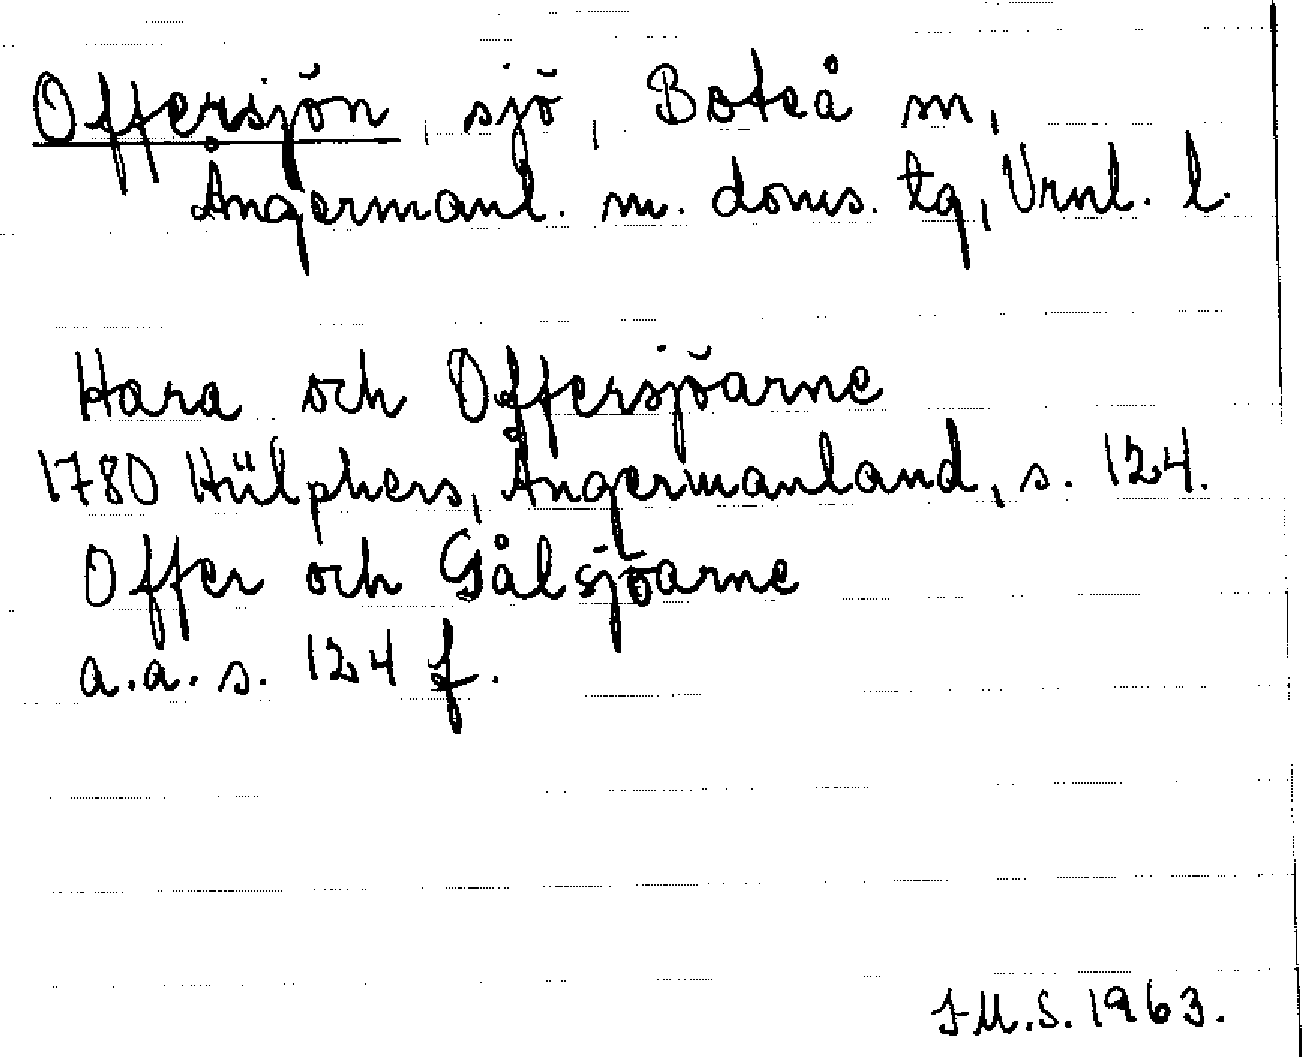 Offersjön, sjö, Boteå sn,
Ångermanl. m. doms. tg, Vrnl. l.
Hara och Offersjöarne
1780 Hülphers, Ångermanland, s. 124.
Offer och Gålsjöarne
a.a. s. 124 f.
I M.S. 1963.